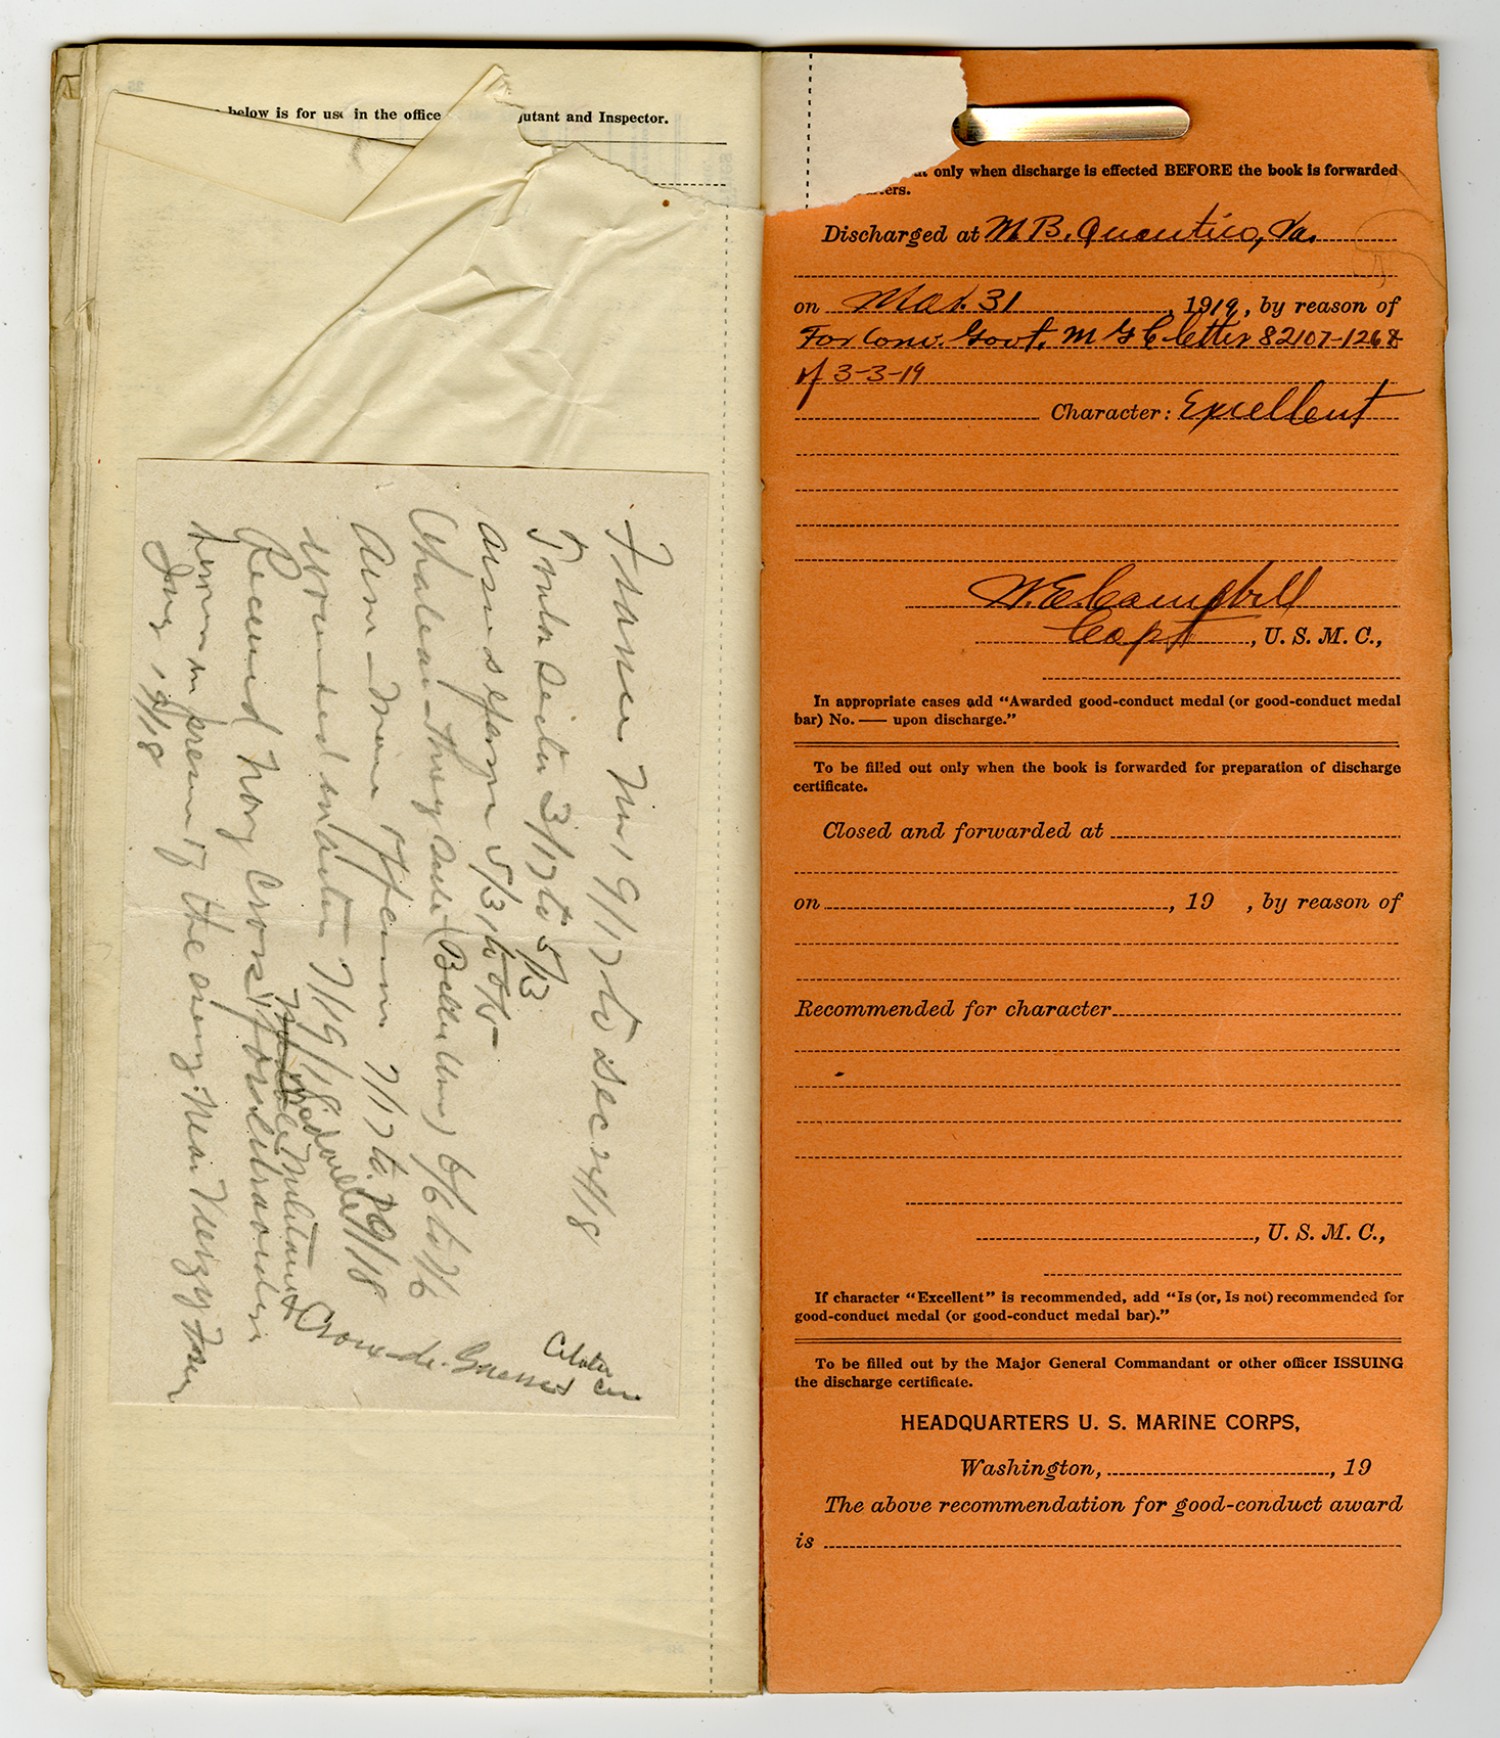 below is for use in the office
utant and Inspector.
France Nov 9/17 to Dec 24/18
Toulon Sector 3/17 to 5/13
Aisne defensive 5/31 to 6/5
Chateau-Thierry Sector (Belleau Wood) 6/6 to 7/6
Aisne-Marne Offensive 7/17 to 7/19/18
wounded in action 7/19/18
Received Navy Cross for extraordinary
heroism in presence of the enemy near Vierzy France
July 19/18
Militaire & Croix-de-Guerre
only when discharge is effected BEFORE the book is forwarded
ers.
Discharged at M.B. Quantico, Va.
on Mar. 31, 1919, by reason of
For Conv. Govt. M G C letter 82107-1268
of 3-3-19
Character: Excellent
W.E. Campbell
Capt, U. S. M. C.,
In appropriate cases add "Awarded good-conduct medal (or good-conduct medal
bar) No. —— upon discharge."
To be filled out only when the book is forwarded for preparation of discharge
certificate.
Closed and forwarded at
on , 19 , by reason of
Recommended for character
, U. S. M. C.,
If character "Excellent" is recommended, add "Is (or, Is not) recommended for
good-conduct medal (or good-conduct medal bar)."
To be filled out by the Major General Commandant or other officer ISSUING
the discharge certificate.
HEADQUARTERS U. S. MARINE CORPS,
Washington, , 19
The above recommendation for good-conduct award
is